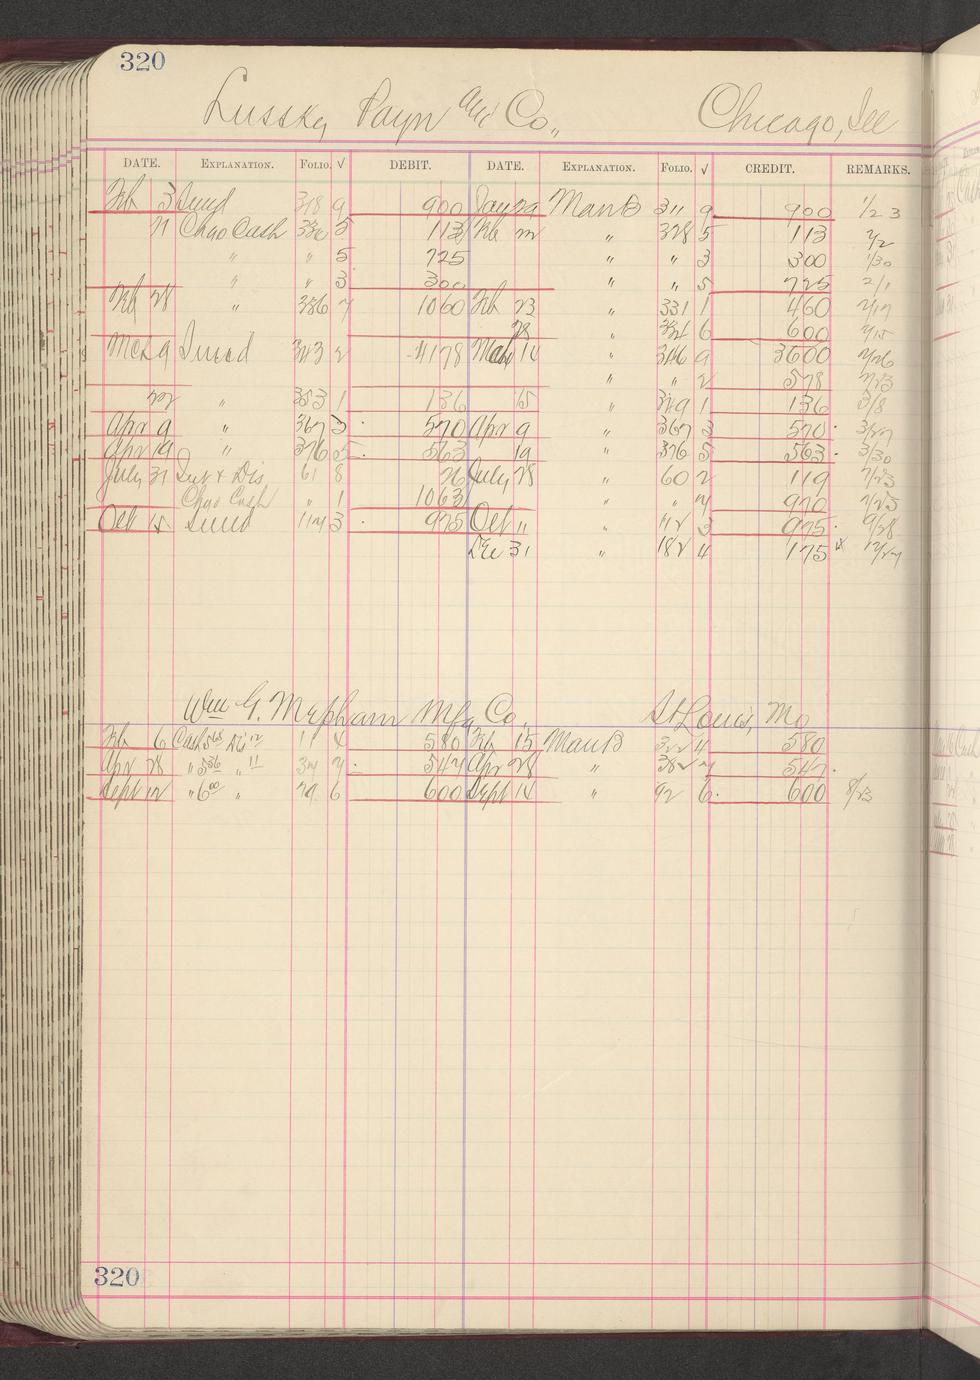 320
Lussky Payn and Co., Chicago, Ill
DATE. EXPLANATION. FOLIO. √ DEBIT. DATE. EXPLANATION. FOLIO. √ CREDIT. REMARKS.
Feb 3 Sund 318 9 900 Jany 29 ManB 311 9 900 1/23
21 Chgo Cash 330 5 113 Feb 328 5 113 2/2
" " 5 725 " " 3 300 1/30
" " 3 300 " " 5 725 2/1
Feb 28 " 336 7 1060 Feb 23 " 331 1 460 2/17
28 " 334 6 600 2/15
Mch 9 Sund 343 2 4178 Mch 14 " 346 9 3600 2/26
" " 2 578 2/23
22 " 353 1 136 15 " 349 1 136 3/8
Apr 9 " 367 3 570 Apr 9 " 367 3 570 3/27
Apr 19 " 376 5 563 19 " 376 5 563 3/30
July 31 Int & Dis 61 8 26 July 28 " 60 2 119 7/23
Chgo Cash " 1 1063 " " 7 970 7/25
Oct 15 Sund 114 3 975 Oct 11 " 112 3 975 9/28
Dec 31 " 182 4 175 12/27
Wm G. Mepham Mfg Co., St Louis, Mo
Feb 6 Cash 568 Dis 12 11 4 580 Feb 15 ManB 322 4 580
Apr 28 " 536 " 11 37 7 547 Apr 28 " 382 7 547
Sept 12 " 600 " 79 6 600 Sept 14 " 92 6 600 8/23
320